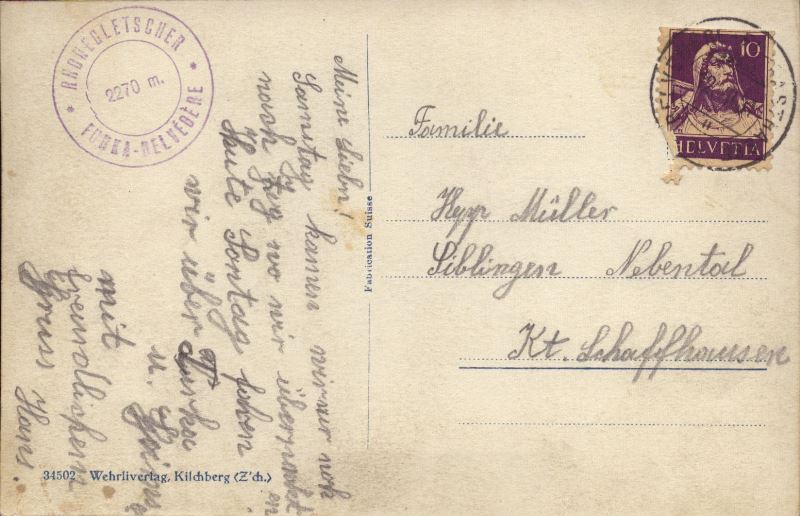 RHONEGLETSCHER
2270 m.
FURKA-BELVÉDÈRE
Meine Lieben!
Samstag kamen wir nur noch
nach wo wir übernachteten
Heute Sontag fahren
wir über Furka
u.
mit
freundlichem
Gruss Hans.
Fabrication Suisse
34502 Wehrliverlag, Kilchberg (Z'ch.)
10
HELVETIA
Familie
Hepp Müller
Siblingen Nebental
Kt. Schaffhausen